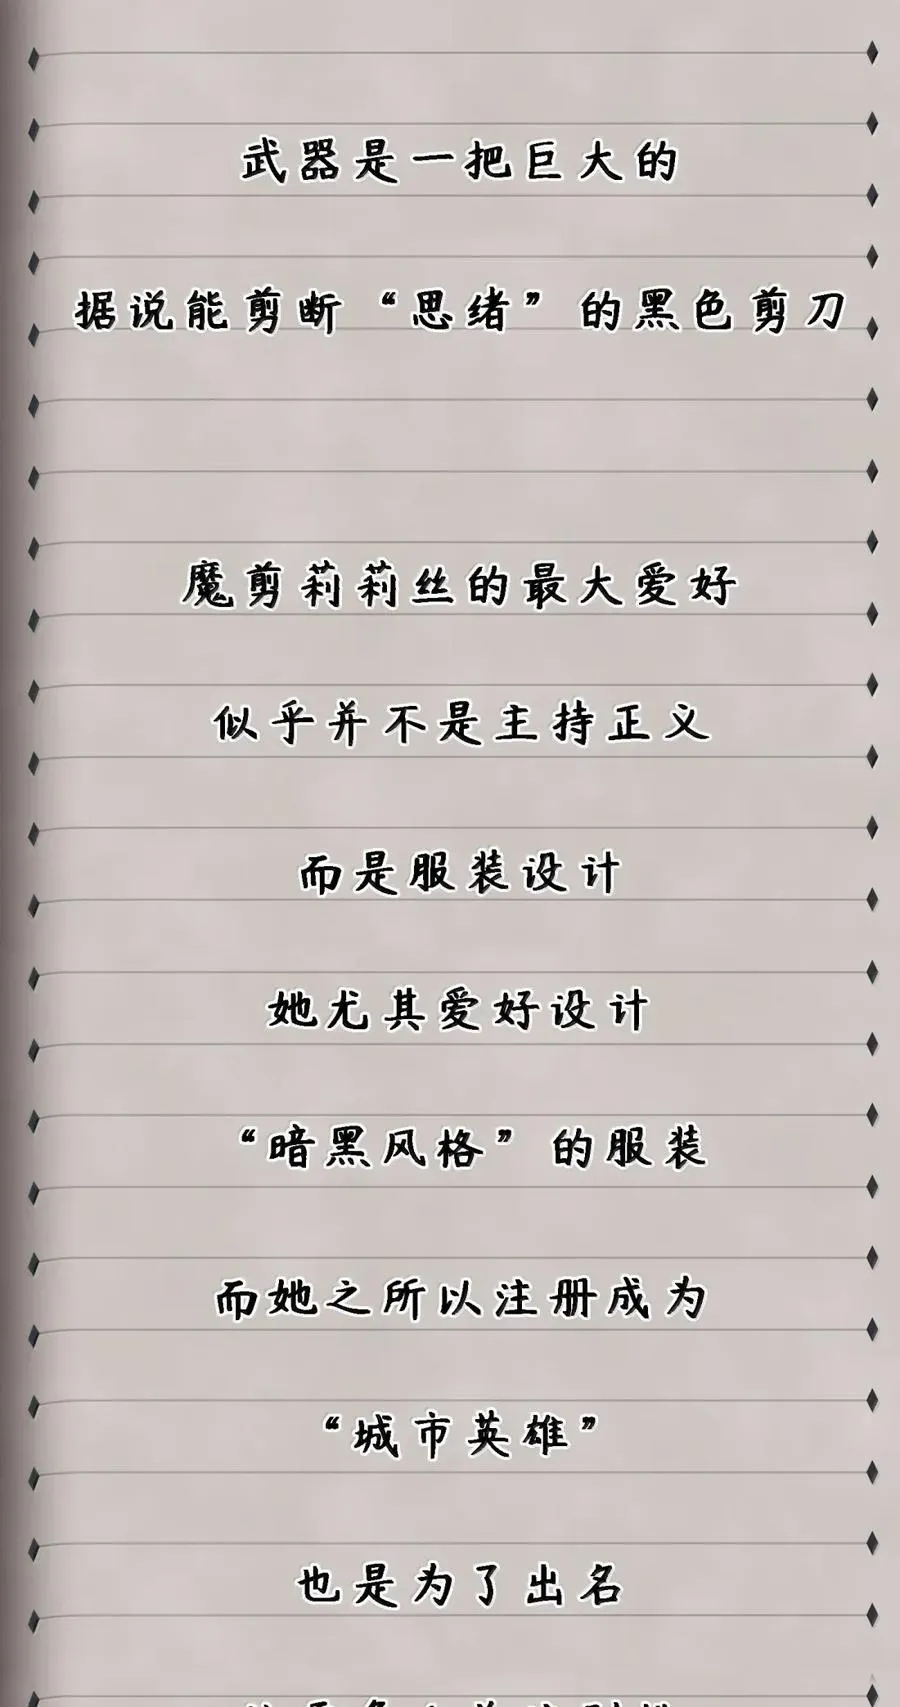 武器是一把巨大的
据说能剪断“思绪”的黑色剪刀
魔剪莉莉丝的最大爱好
似乎并不是主持正义
而是服装设计
她尤其爱好设计
“暗黑风格”的服装
而她之所以注册成为
“城市英雄”
也是为了出名